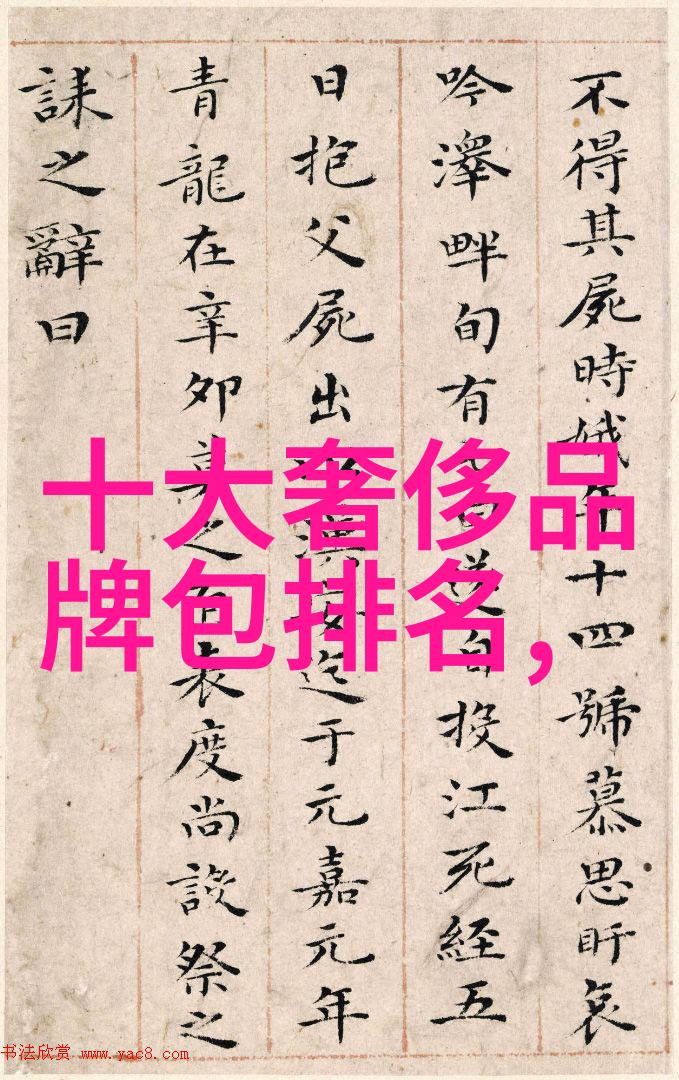 不得其屍時娥年十四號慕思盱哀
吟澤畔旬有遂自投江死經五
日抱父屍出漢安迄于元嘉元年
青龍在辛卯莫之有表度尚設祭之
誄之辭曰
十大奢侈品
牌包排名,
书法欣赏 www.yac8.com